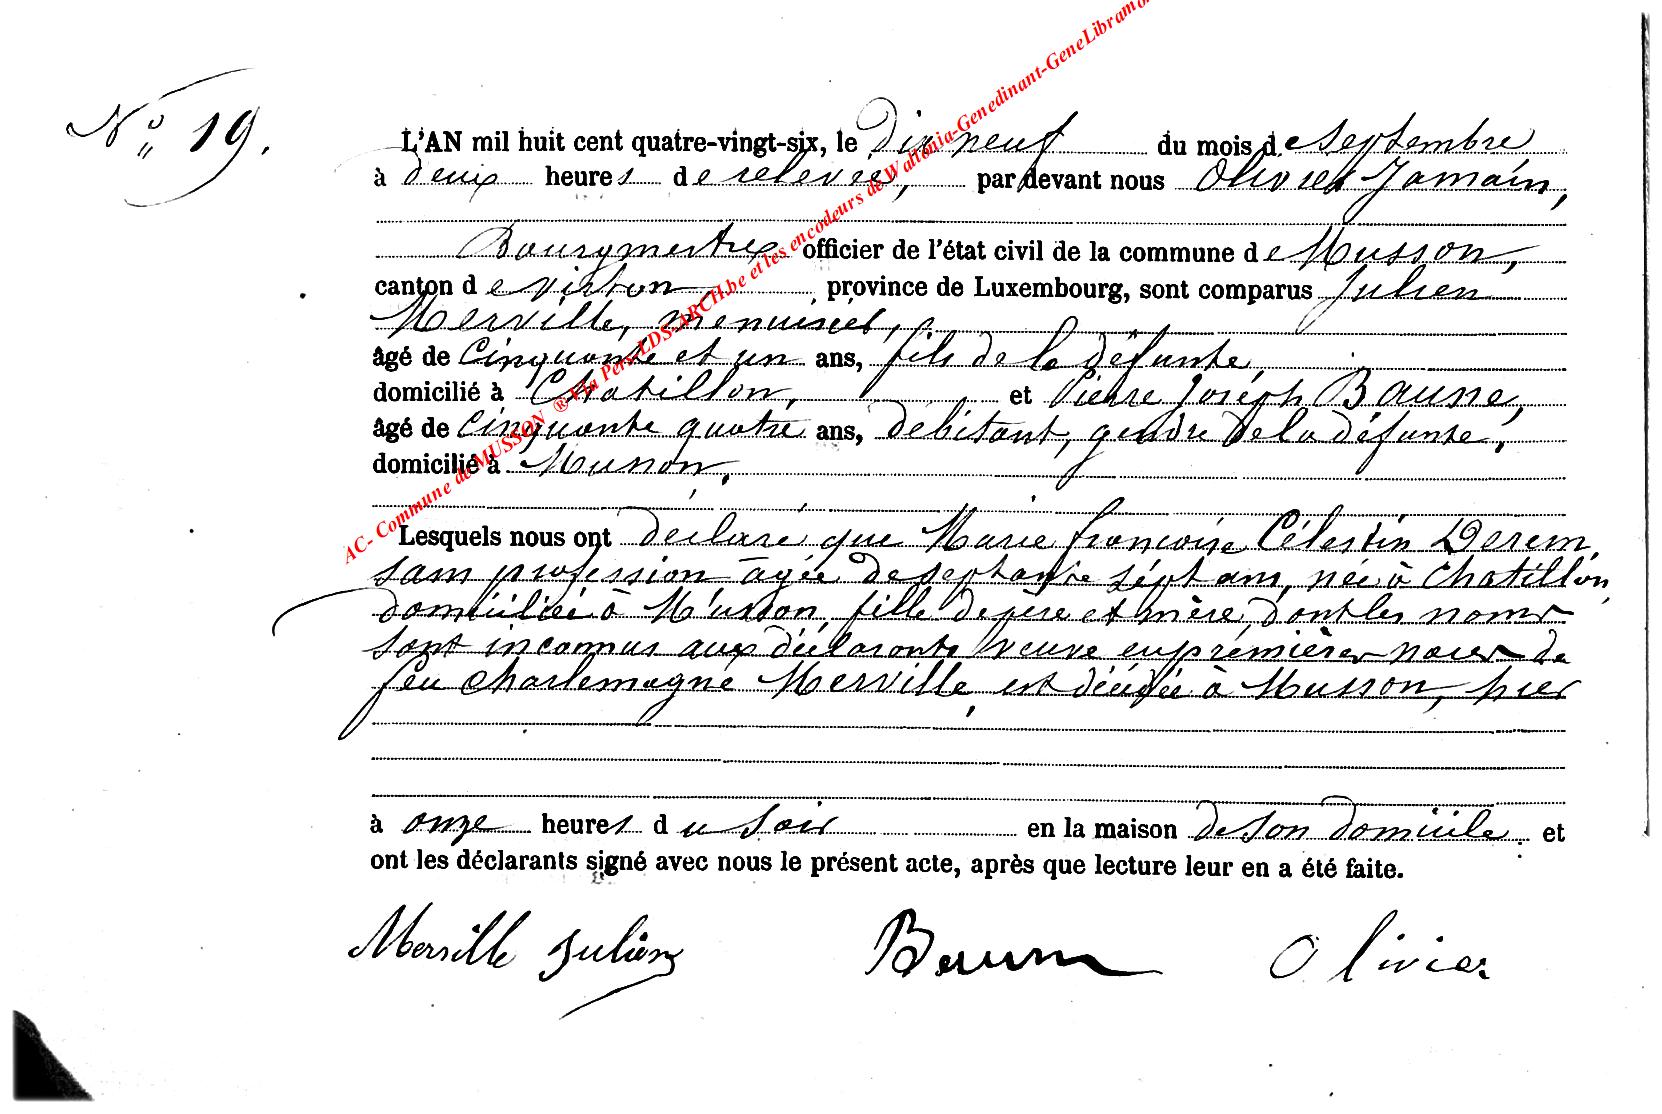 N° 19.
L'AN mil huit cent quatre-vingt-six, le Dix neuf du mois de Septembre
à deux heures de relevée, par devant nous Olivier Jamain,
Bourgmestre officier de l'état civil de la commune de Musson,
canton de Virton province de Luxembourg, sont comparus Julien
Merville, menuisier,
âgé de Cinquante et un ans, fils de la défunte,
domicilié à Chatillon, et Pierre Joseph Bausse,
âgé de Cinquante quatre ans, débitant, gendre de la défunte,
domicilié à Musson.
Lesquels nous ont déclaré que Marie françoise Célestin Derem,
sans profession âgée de septante sept ans, née à Chatillon,
domiciliée à Musson, fille de père et mère, dont les noms
sont inconnus aux déclarants veuve en premières noces de
feu Charlemagne Merville, est décédée à Musson, hier
à onze heures du Soir en la maison de son domicile et
ont les déclarants signé avec nous le présent acte, après que lecture leur en a été faite.
Merville Julien Olivier
AC- Commune de MUSSON ® Via Perv-LDS-ARCH.be et les encodeurs de Wallonia-Genedinant-GeneLibramo